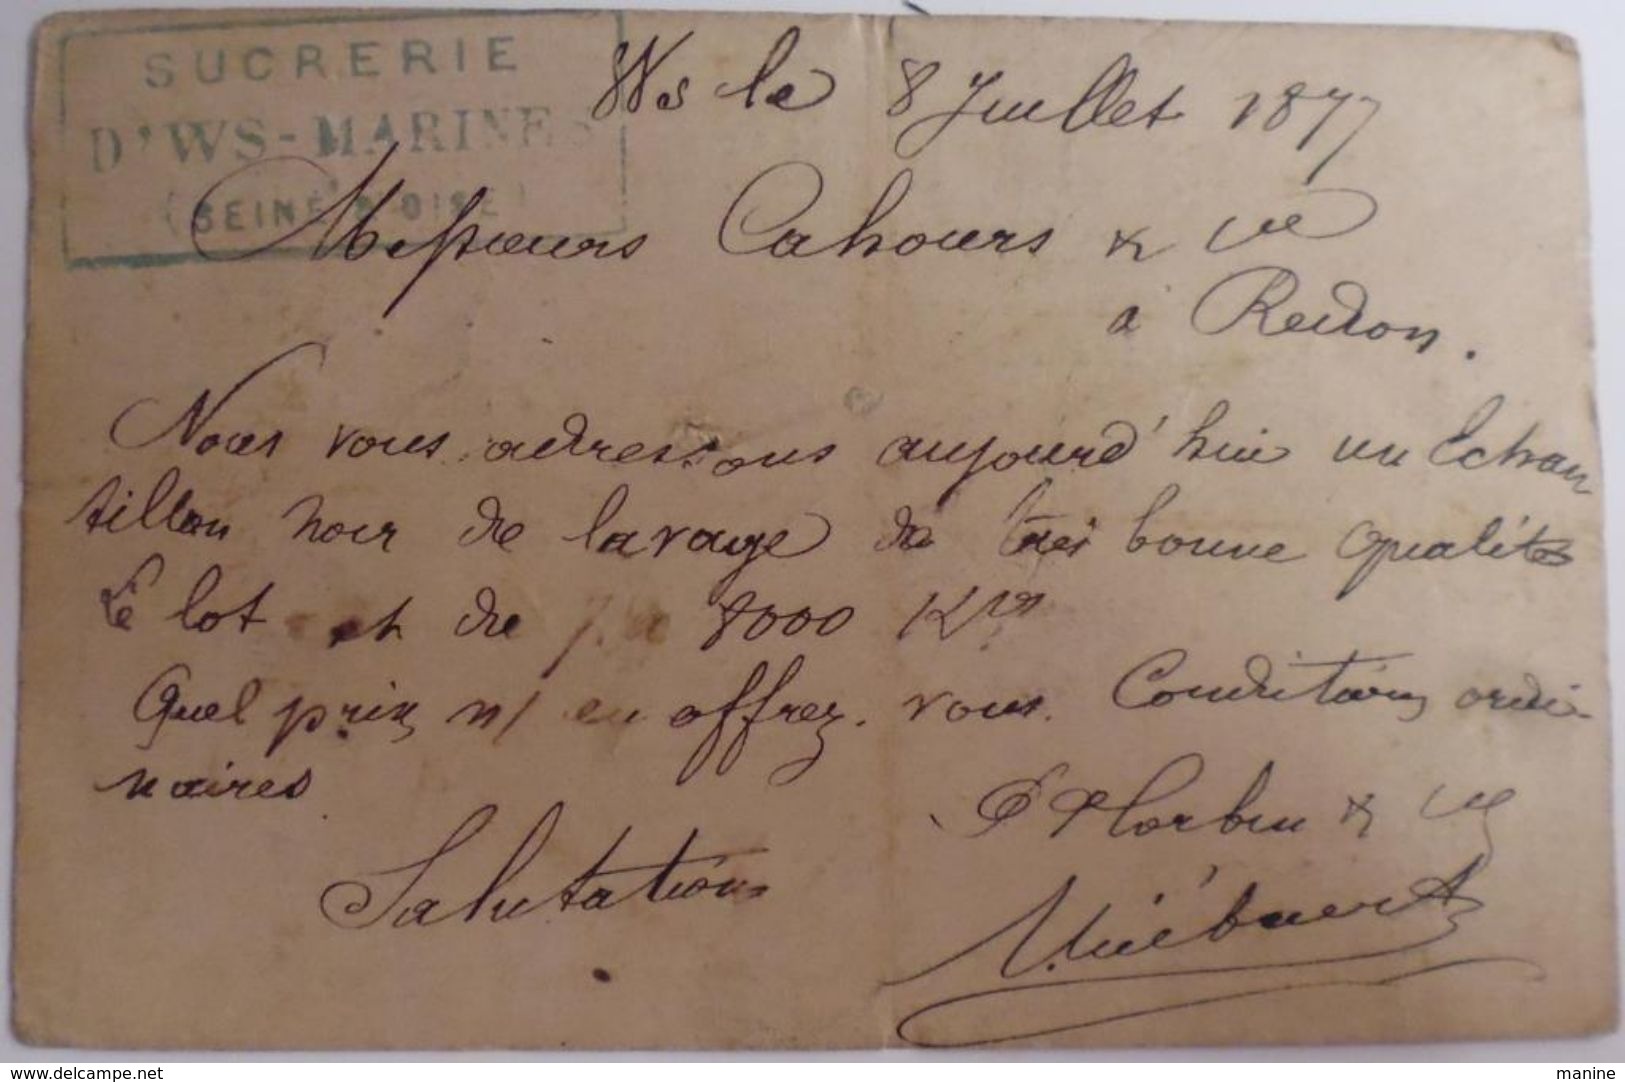 SUCRERIE
D'WS-MARINES
(SEINE & OISE)
Ws le 8 Juillet 1877
Messieurs Cahours & Cie
à Redon.
Nous vous adressons aujourd'hui un Echan
tillon noir de lavage de très bonne qualité
Le lot et de 8000 Kos
Quel prix n/ en offrez-vous. Conditions ordi-
naires
Salutations
& Cie
www.delcampe.net
manine